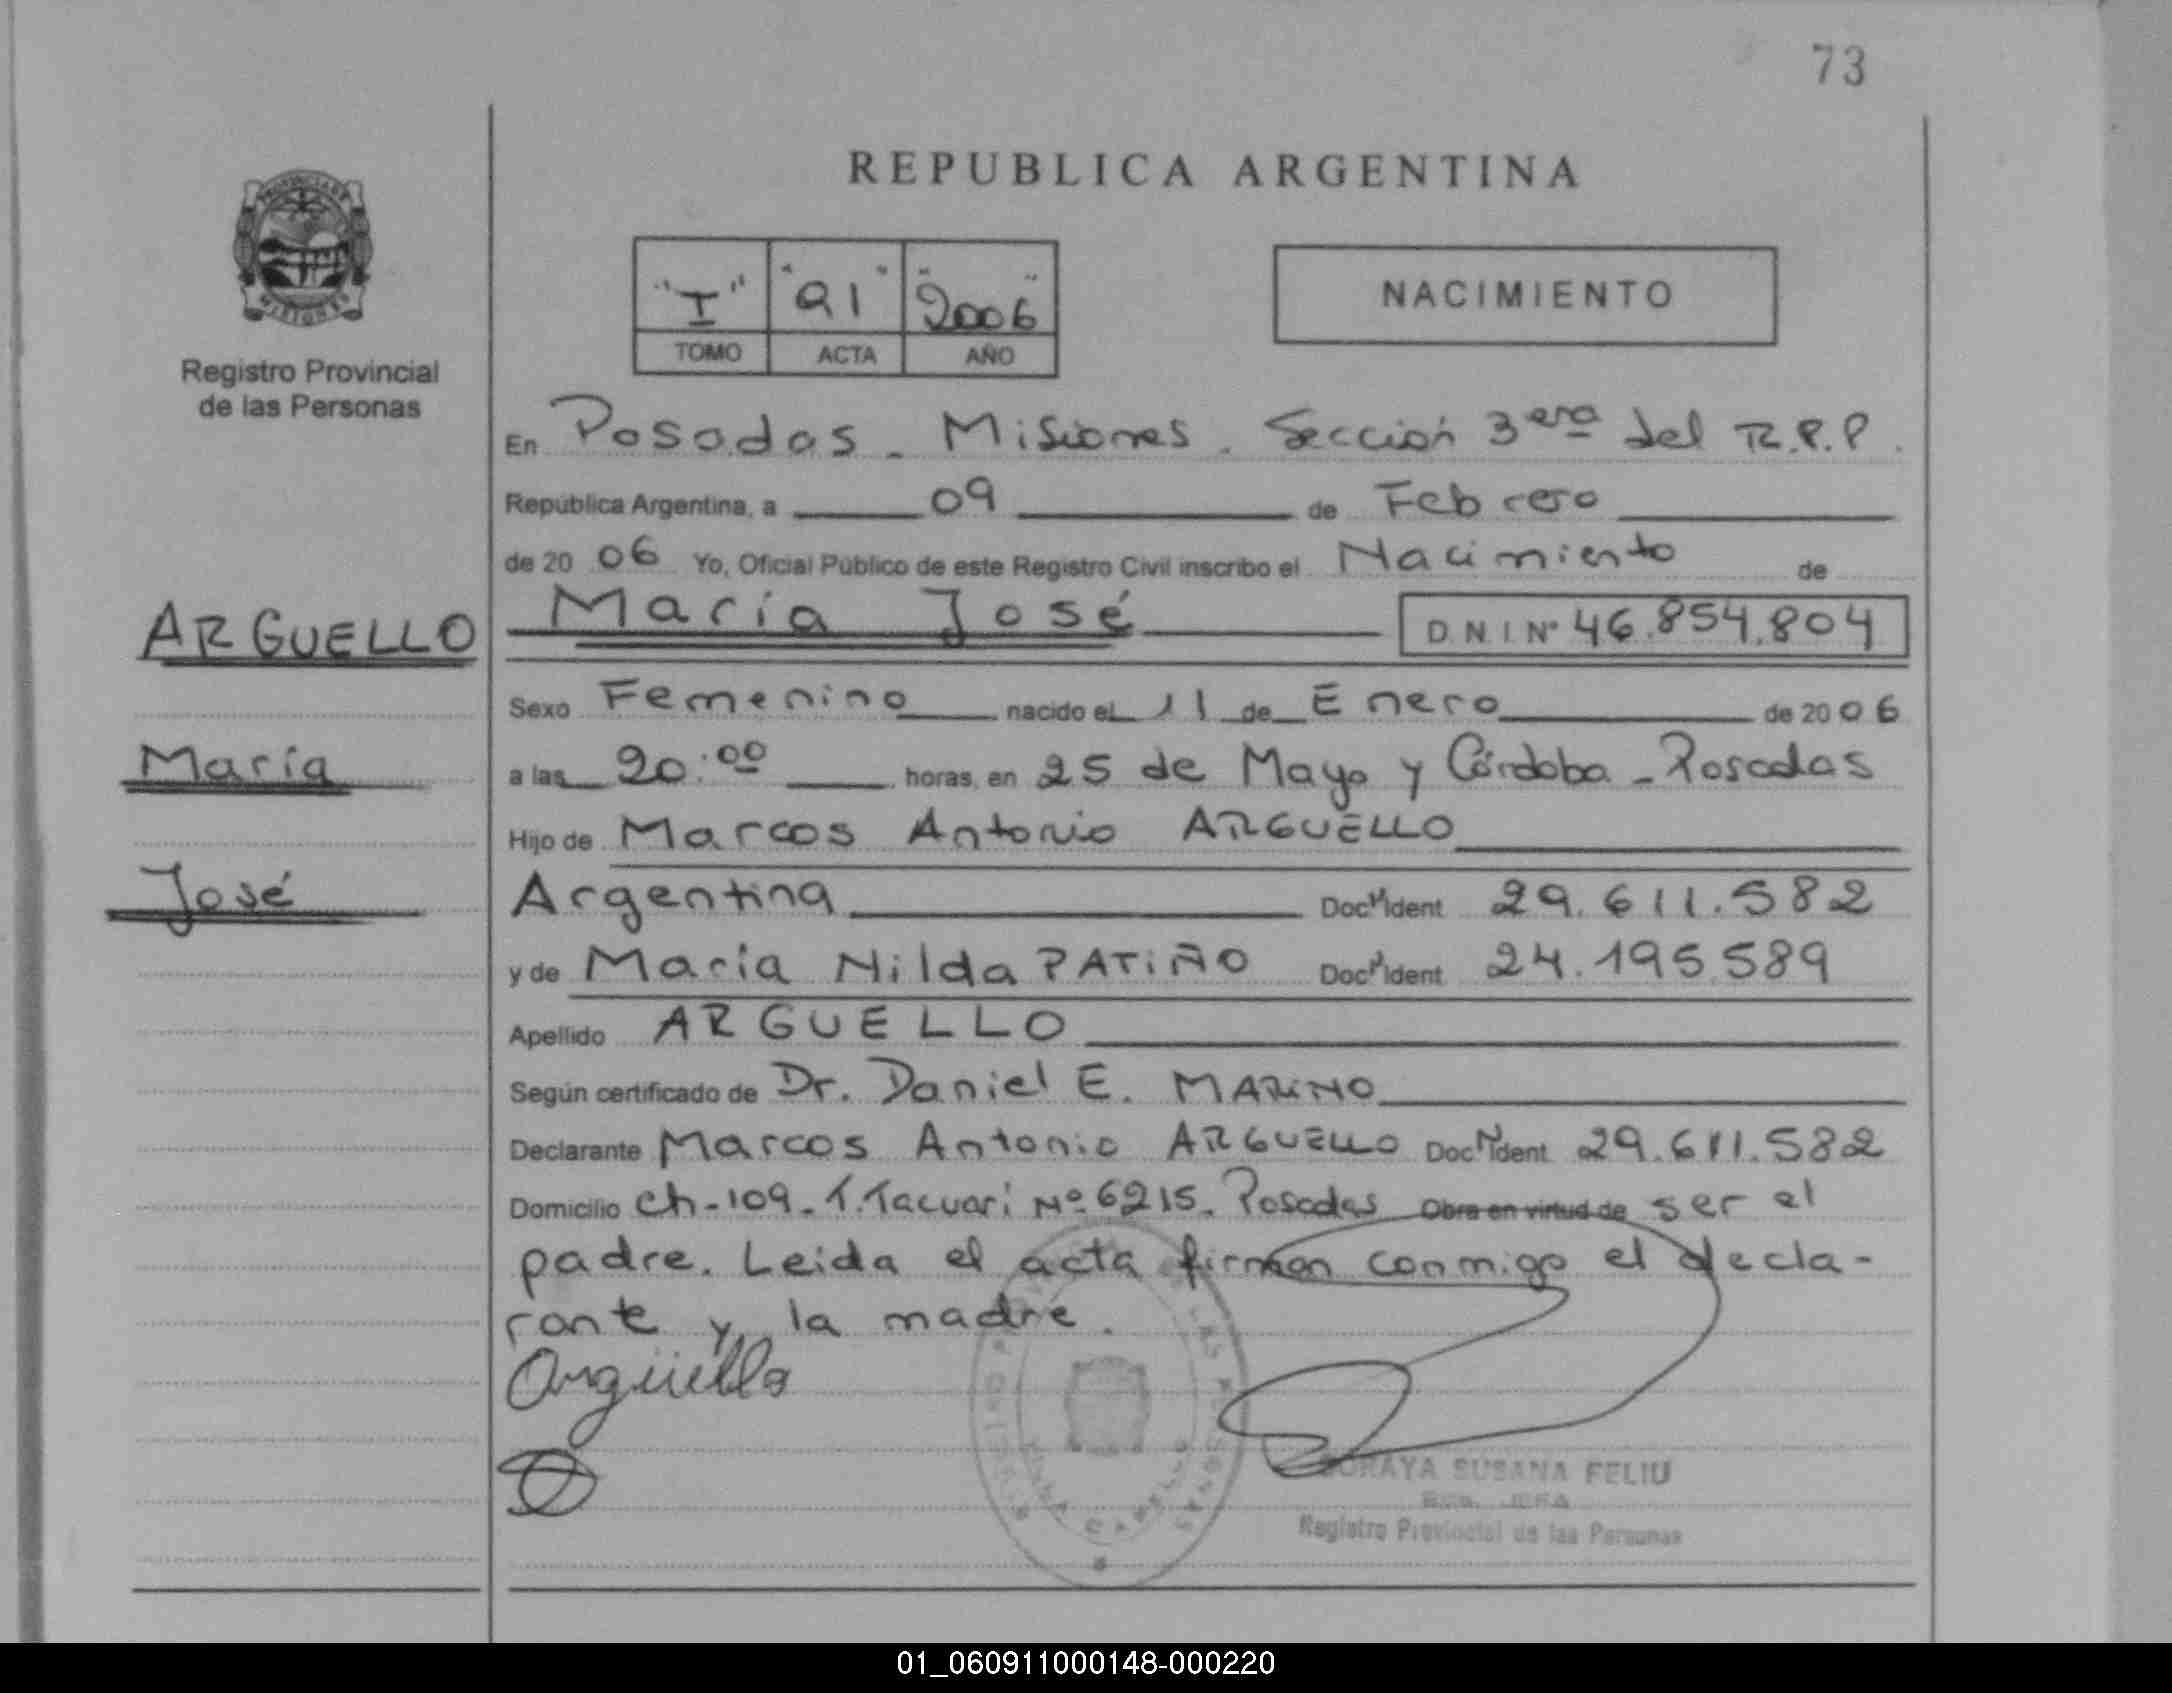 73
REPUBLICA ARGENTINA
"I" "91" "2006"
TOMO ACTA AÑO
NACIMIENTO
PROVINCIA DE
MISIONES
Registro Provincial
de las Personas
En Posadas - Misiones. Sección 3era del R.P.P.
República Argentina, a 09 de Febrero
de 20 06 Yo, Oficial Público de este Registro Civil inscribo el Nacimiento de
ARGUELLO
María José D.N.I. Nº 46.854.804
Sexo Femenino nacido el 11 de Enero de 20 06
María
a las 20:00 horas, en 25 de Mayo y Córdoba - Posadas
Hijo de Marcos Antonio ARGUELLO
José
Argentina Doc. Ident 29.611.582
y de María Nilda PATIÑO Doc. Ident 24.195.589
Apellido ARGUELLO
Según certificado de Dr. Daniel E. MARINO
Declarante Marcos Antonio ARGUELLO Doc. Ident 29.611.582
Domicilio Ch-109-T.Tacuari Nº 6215. Posadas Obra en virtud de ser el
padre. Leida el acta firman conmigo el decla-
rante y la madre.
Argüello
SORAYA SUSANA FELIU
JEFA
Registro Provincial de las Personas
01_060911000148-000220